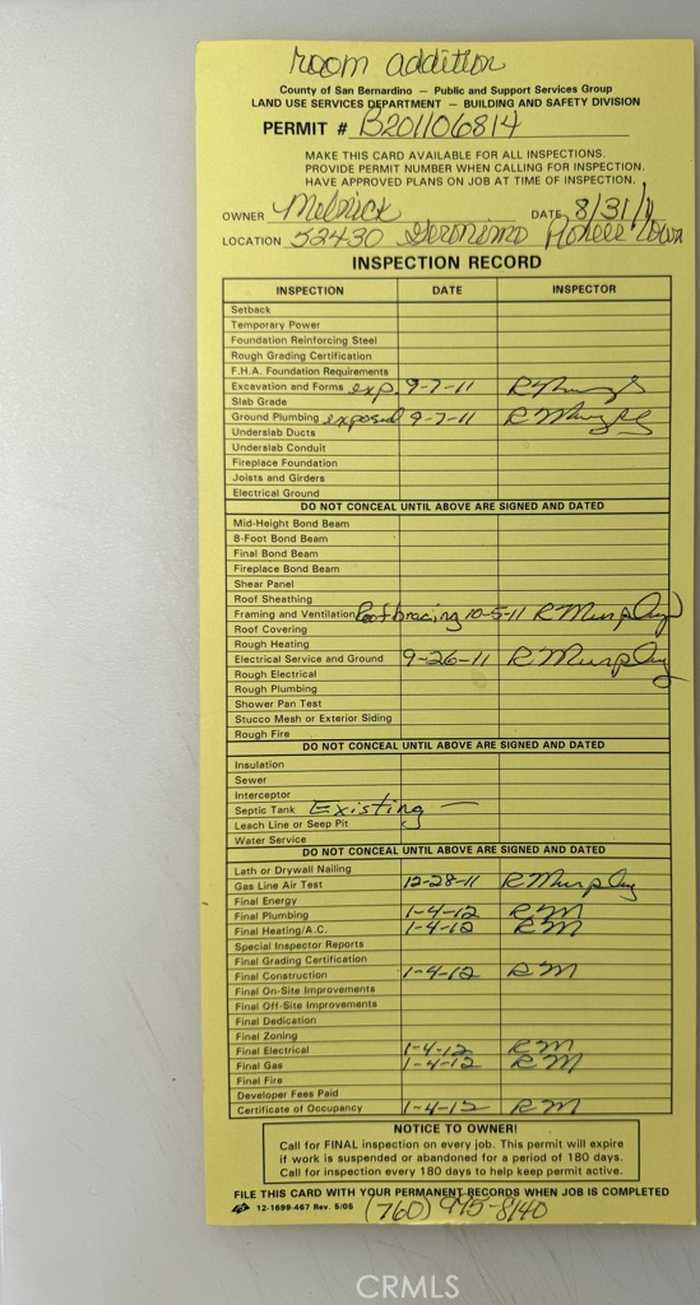 room addition
County of San Bernardino — Public and Support Services Group
LAND USE SERVICES DEPARTMENT — BUILDING AND SAFETY DIVISION
PERMIT # B201106814
MAKE THIS CARD AVAILABLE FOR ALL INSPECTIONS.
PROVIDE PERMIT NUMBER WHEN CALLING FOR INSPECTION.
HAVE APPROVED PLANS ON JOB AT TIME OF INSPECTION.
OWNER Melnick DATE 8/31/11
LOCATION 52430 Geronimo Pioneer Town
INSPECTION RECORD
INSPECTION DATE INSPECTOR
Setback
Temporary Power
Foundation Reinforcing Steel
Rough Grading Certification
F.H.A. Foundation Requirements
Excavation and Forms exp. 9-7-11 R Murphy
Slab Grade
Ground Plumbing exposed 9-7-11 R Murphy
Underslab Ducts
Underslab Conduit
Fireplace Foundation
Joists and Girders
Electrical Ground
DO NOT CONCEAL UNTIL ABOVE ARE SIGNED AND DATED
Mid-Height Bond Beam
8-Foot Bond Beam
Final Bond Beam
Fireplace Bond Beam
Shear Panel
Roof Sheathing
Framing and Ventilation Roof bracing 10-5-11 R Murphy
Roof Covering
Rough Heating
Electrical Service and Ground 9-26-11 R Murphy
Rough Electrical
Rough Plumbing
Shower Pan Test
Stucco Mesh or Exterior Siding
Rough Fire
DO NOT CONCEAL UNTIL ABOVE ARE SIGNED AND DATED
Insulation
Sewer
Interceptor
Septic Tank Existing —
Leach Line or Seep Pit
Water Service
DO NOT CONCEAL UNTIL ABOVE ARE SIGNED AND DATED
Lath or Drywall Nailing
Gas Line Air Test 12-28-11 R Murphy
Final Energy
Final Plumbing 1-4-12 RM
Final Heating/A.C. 1-4-12 RM
Special Inspector Reports
Final Grading Certification
Final Construction 1-4-12 RM
Final On-Site Improvements
Final Off-Site Improvements
Final Dedication
Final Zoning
Final Electrical 1-4-12 RM
Final Gas 1-4-12 RM
Final Fire
Developer Fees Paid
Certificate of Occupancy 1-4-12 RM
NOTICE TO OWNER!
Call for FINAL inspection on every job. This permit will expire
if work is suspended or abandoned for a period of 180 days.
Call for inspection every 180 days to help keep permit active.
FILE THIS CARD WITH YOUR PERMANENT RECORDS WHEN JOB IS COMPLETED
12-1699-467 Rev. 5/05 (760) 975-8140
CRMLS